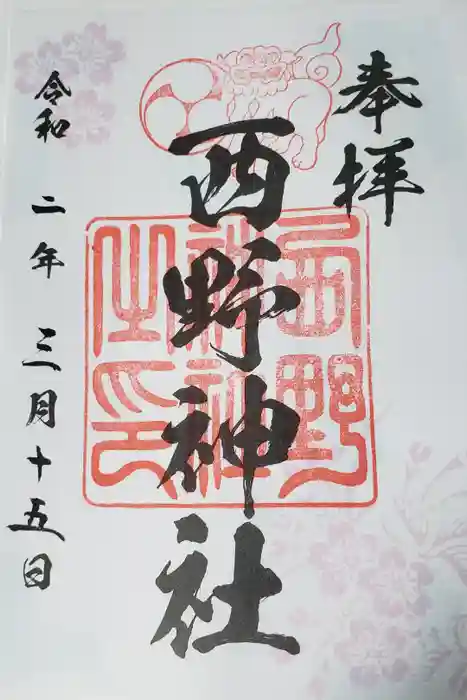 奉拝
西野神社
令和二年三月十五日
西野
神社
之印